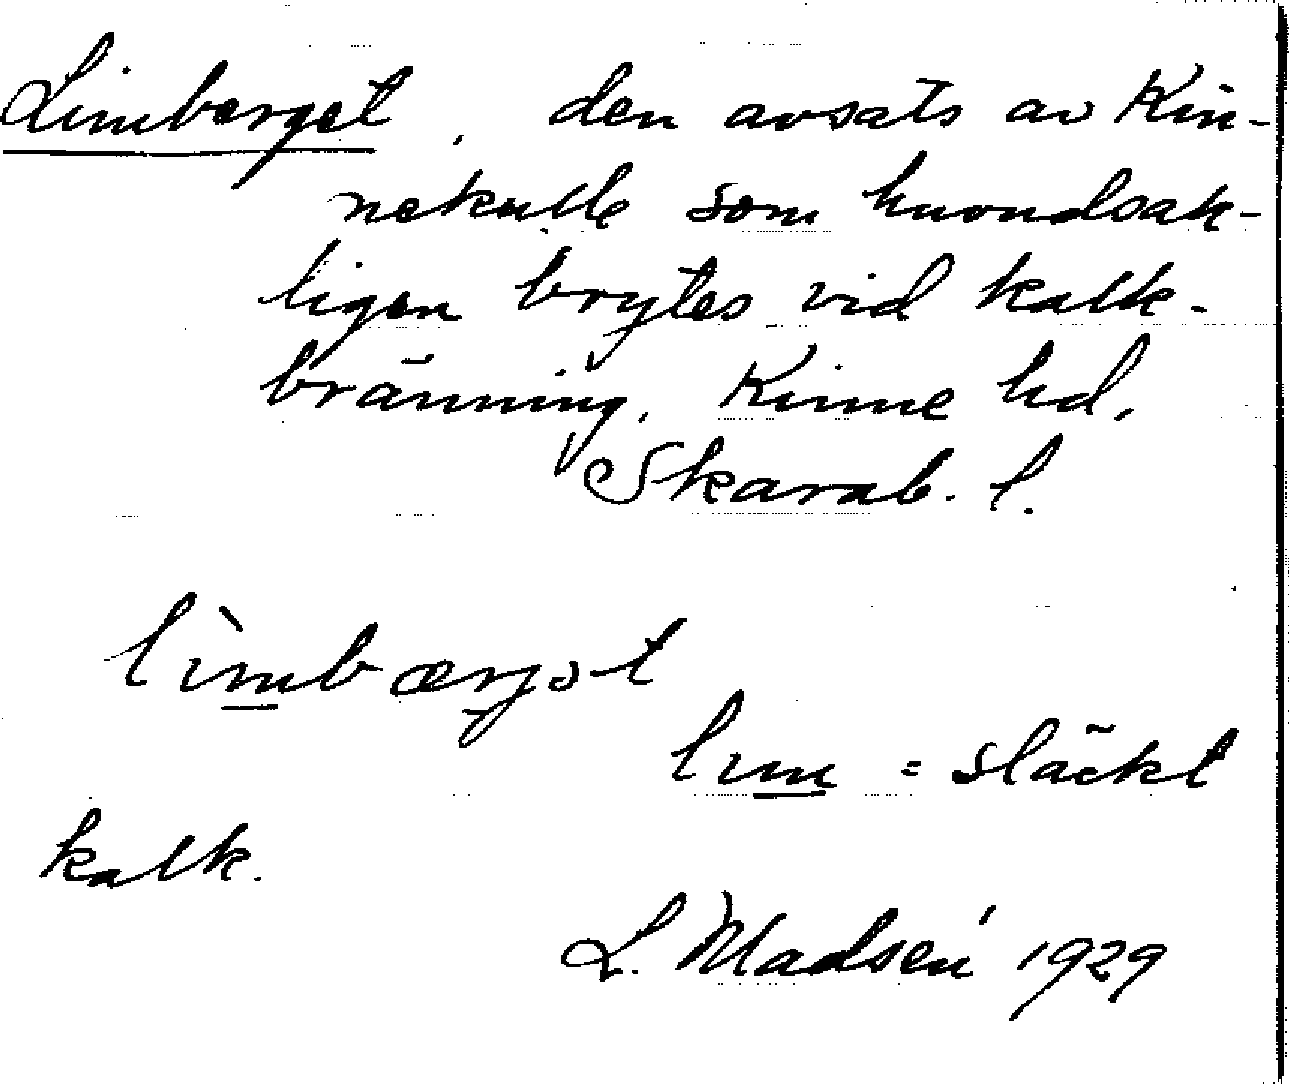 Limberget, den avsats av Kin-
nekulle som huvudsak-
ligen brytes vid kalk-
bränning. Kinne hd.
Skarab. l.
lìmbærjət
lim = släckt
kalk.
L. Madsén 1929